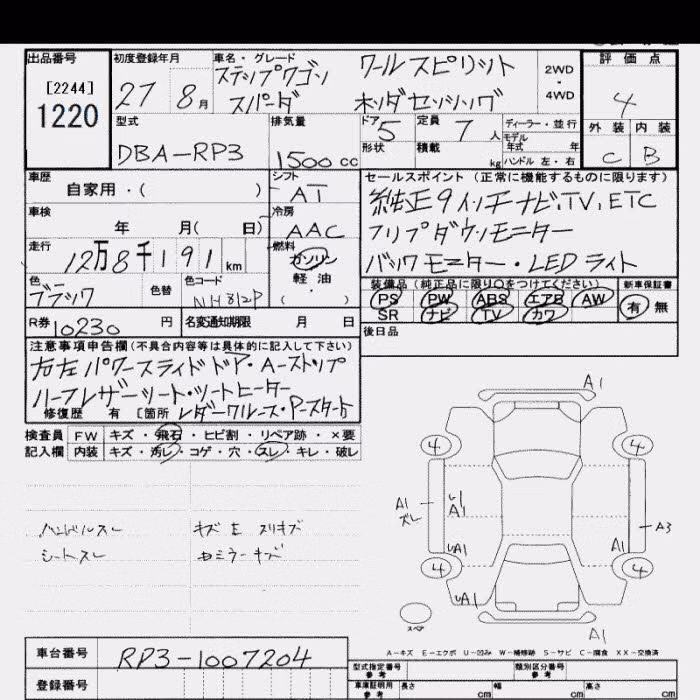 出品番号
[2244]
1220
初度登録年月
27 8月
車名・グレード
ステップワゴン ワールスピリット
スパーダ ホンダセンシング
2WD・4WD
評価点
4
外装 内装
C B
型式
DBA-RP3
排気量
1500cc
ドア 5
形状
定員 7人
積載 kg
ディーラー・並行
モデル年式 年
ハンドル 左・右
車歴
自家用・( )
シフト
AT
車検
年 月( 日)
冷房
AAC
走行
12万8千191km
燃料
ガソリン
軽油
( ・ )
色
ブラック
色替
色コード
NH812P
R券 10230円
名変通知期限 月 日
セールスポイント (正常に機能するものに限ります)
純正9インチナビ,TV,ETC
フリップダウンモニター
バックモニター・LEDライト
装備品 (純正品に限り○をつけてください)
PS PW ABS エアB AW
SR ナビ TV カワ
新車保証書
有 無
後日品
注意事項申告欄(不具合内容等は具体的に記入して下さい)
右左パワースライドドア・A-ストップ
ハーフレザーシート・シートヒーター
修復歴 有 [箇所 レダークルーズ・Pスタート
検査員記入欄
FW キズ・飛石・ヒビ割・リペア跡・×要
内装 キズ・汚レ・コゲ・穴・スレ・キレ・破レ
ハンドルスレ キズE スリキズ
シートスレ セミラーキズ
A1
4 4
A1
ズレ
A1
A3
UA1
A1
4 4
UA1
スペア
A1
A-キズ E-エクボ U-凹み W-補修跡 S-サビ C-腐食 XX-交換済
車台番号
RP3-1007204
登録番号
型式指定番号 参考
類別区分番号 参考
車庫証明用 参考
長さ cm
幅 cm
高さ cm